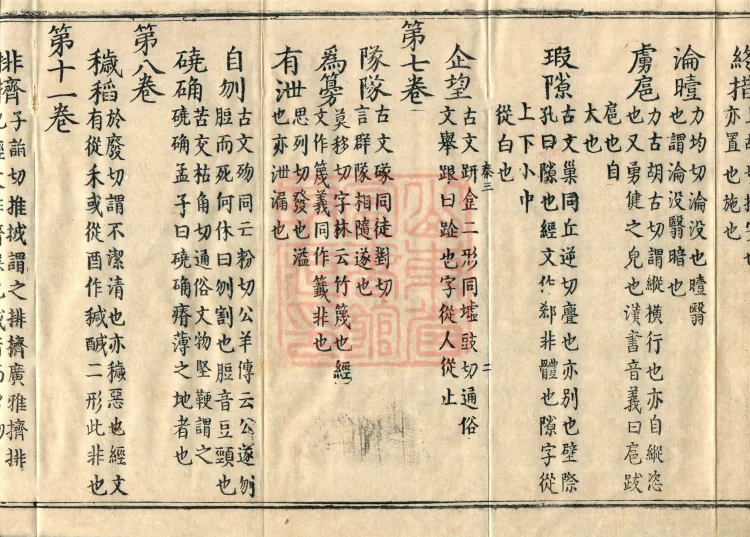 亦置也施也
淪曀力均切淪没也曀翳
也謂淪没翳暗也
虜扈力古胡古切謂縱横行也亦自縱恣
也又勇健之皃也漢書音義曰扈跋
扈也自
太也
瑕隙古文𡭴同丘逆切釁也亦別也壁際
孔曰隙也經文作郄非體也隙字從
上下小中
從白也
企望古文趼𨀌二形同墟豉切通俗
文舉跟曰跂也字從人從止
第七卷
隊隊古文㒸同徒對切
言群隊相隨遂也
為篾莫移切字林云竹篾也經
文作篾義同作籤非也
有泄思列切發也溢
也亦泄漏也
自刎古文歾同云粉切公羊傳云公遂刎
脰而死何休曰刎割也脰音豆頸也
磽确苦交枯角切通俗文物堅鞕謂之
磽确孟子曰磽确瘠薄之地者也
第八卷
穢稻於廢切謂不潔清也亦穢惡也經文
有從禾或從酉作䅏醎二形此非也
第十一卷
排擠子詣切推㧞謂之排擠廣雅擠排